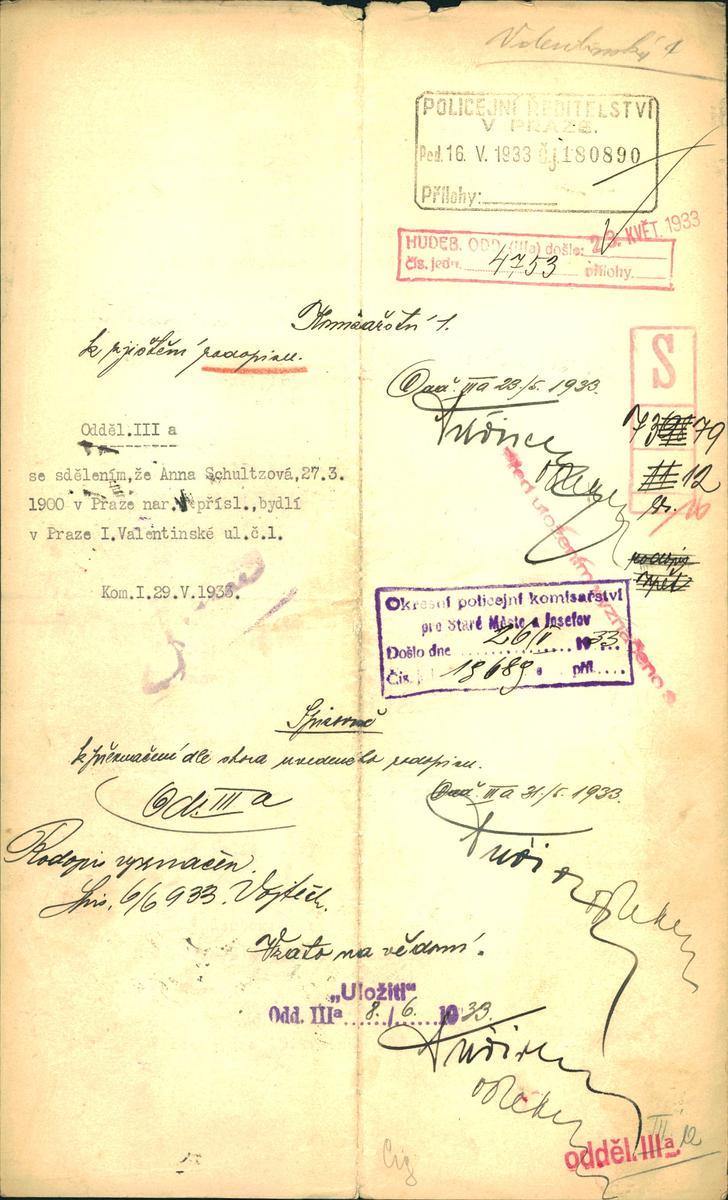 POLICEJNÍ ŘEDITELSTVÍ
V PRAZE.
Pod. 16. V. 1933 Č.j. 180890
Přílohy:
HUDEB. ODD. (IIIa) došlo: 23. KVĚT. 1933
čís. jedn. 4753 přílohy
1.
k zjištění rodopisu.
Odd. IIIa 23/5. 1933.
S
79
12
Odděl.III a
se sdělením,že Anna Schultzová,27.3.
1900 v Praze nar. přísl.,bydlí
v Praze I.Valentinské ul.č.1.
Kom.I.29.V.1933.
před uložením vyznačeno
Okresní policejní komisařství
pro Staré Město a Josefov
Došlo dne 26/V 1933.
Čís. j. 18689. příl.
Spisovně
k přeznačení dle shora uvedeného rodopisu.
Odd. IIIa
Odd. IIIa 31/5. 1933.
Rodopis vyznačen.
Spis. 6/6 933. Vojtěch.
Vzato na vědomí.
„Uložiti"
Odd. IIIa 8./6. 1933.
odděl. IIIa